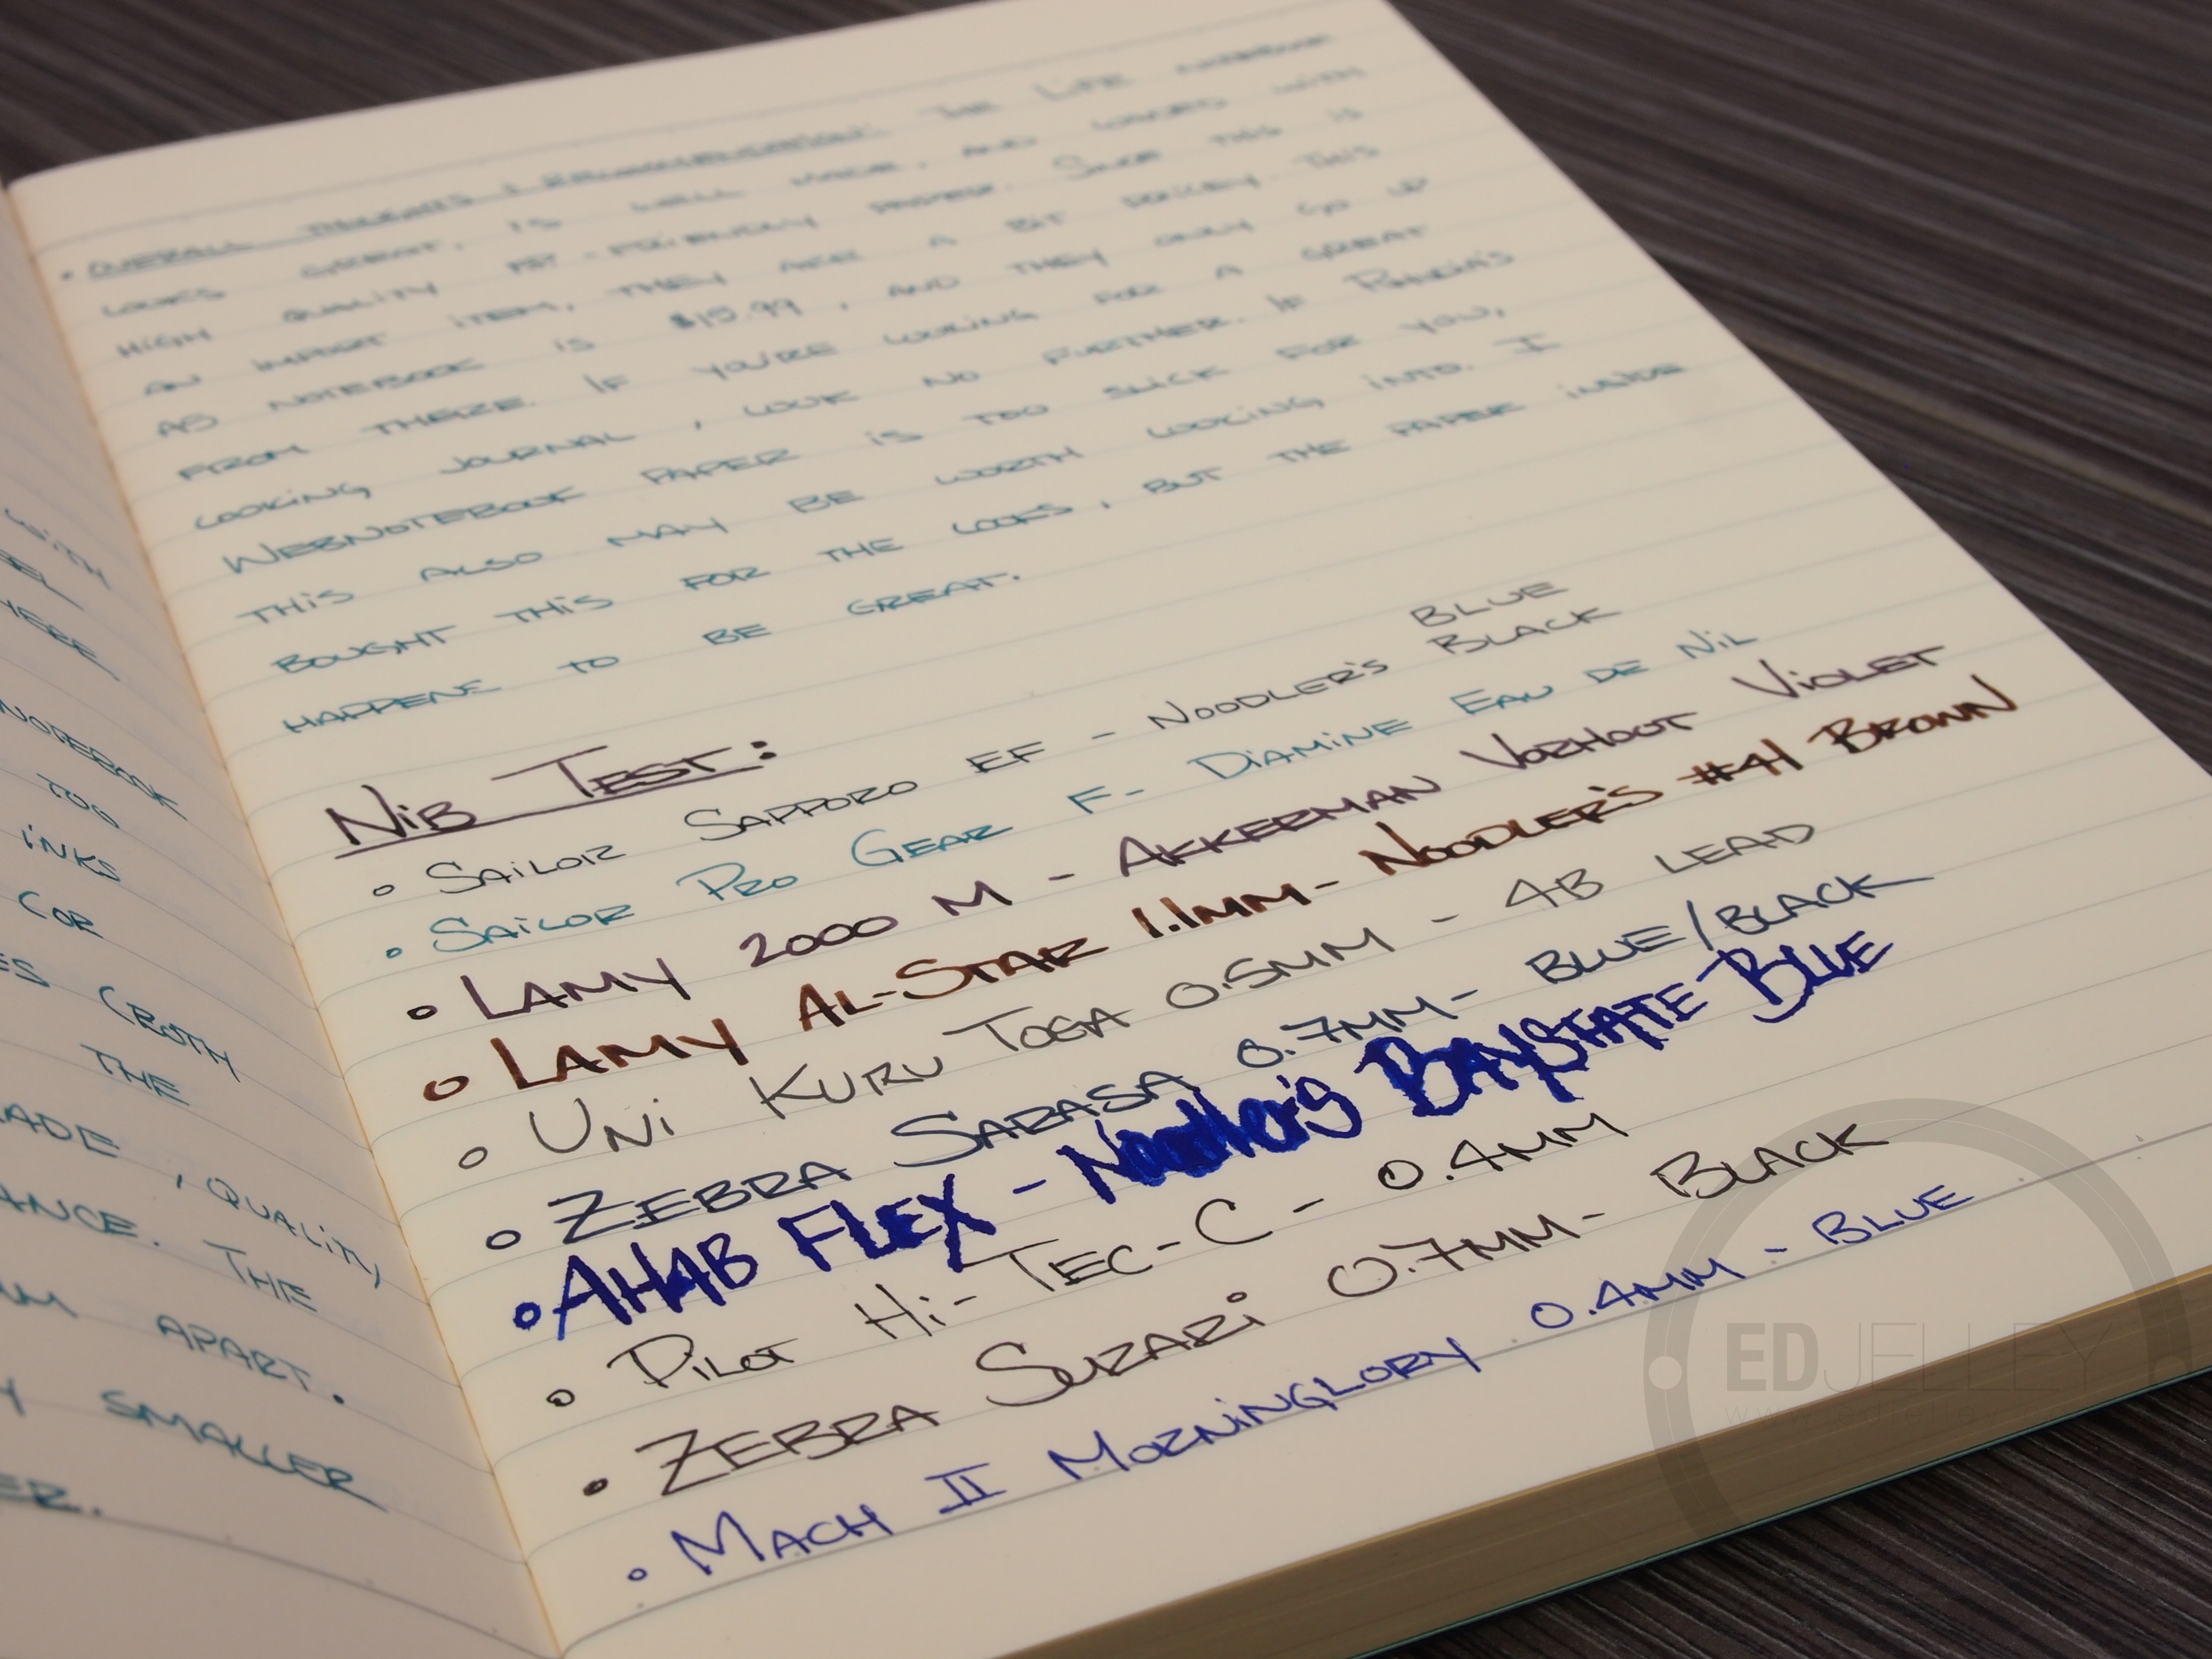 WITH
INKS
(BOTH
THE
, QUALITY,
THE
APART.
SMALLER
• OVERALL THOUGHTS & RECOMMENDATION: THE LIFE NOTEBOOK
LOOKS GREAT, IS WELL MADE, AND LOADED WITH
HIGH QUALITY FP-FRIENDLY PAPER. SINCE THIS IS
AN IMPORT ITEM, THEY ARE A BIT PRICEY. THIS
A5 NOTEBOOK IS $15.99, AND THEY ONLY GO UP
FROM THERE. IF YOU'RE LOOKING FOR A GREAT
LOOKING JOURNAL, LOOK NO FURTHER. IF RHODIA'S
WEBNOTEBOOK PAPER IS TOO SLICK FOR YOU,
THIS ALSO MAY BE WORTH LOOKING INTO. I
BOUGHT THIS FOR THE LOOKS, BUT THE PAPER INSIDE
HAPPENS TO BE GREAT.
NIB TEST:
BLUE
◦ SAILOR SAPPORO EF - NOODLER'S BLACK
◦ SAILOR PRO GEAR F- DIAMINE EAU DE NIL
◦ LAMY 2000 M - AKKERMAN VORHOUT VIOLET
◦ LAMY AL-STAR 1.1MM- NOODLER'S #41 BROWN
◦ UNI KURU TOGA 0.5MM - 4B LEAD
◦ ZEBRA SARASA 0.7MM- BLUE/BLACK
◦ AHAB FLEX - Noodler's BAYSTATE BLUE
◦ PILOT HI-TEC-C - 0.4MM
• ZEBRA SURARI 0.7MM- BLACK
◦ MACH II MORNINGLORY 0.4MM - BLUE
EDJELLEY